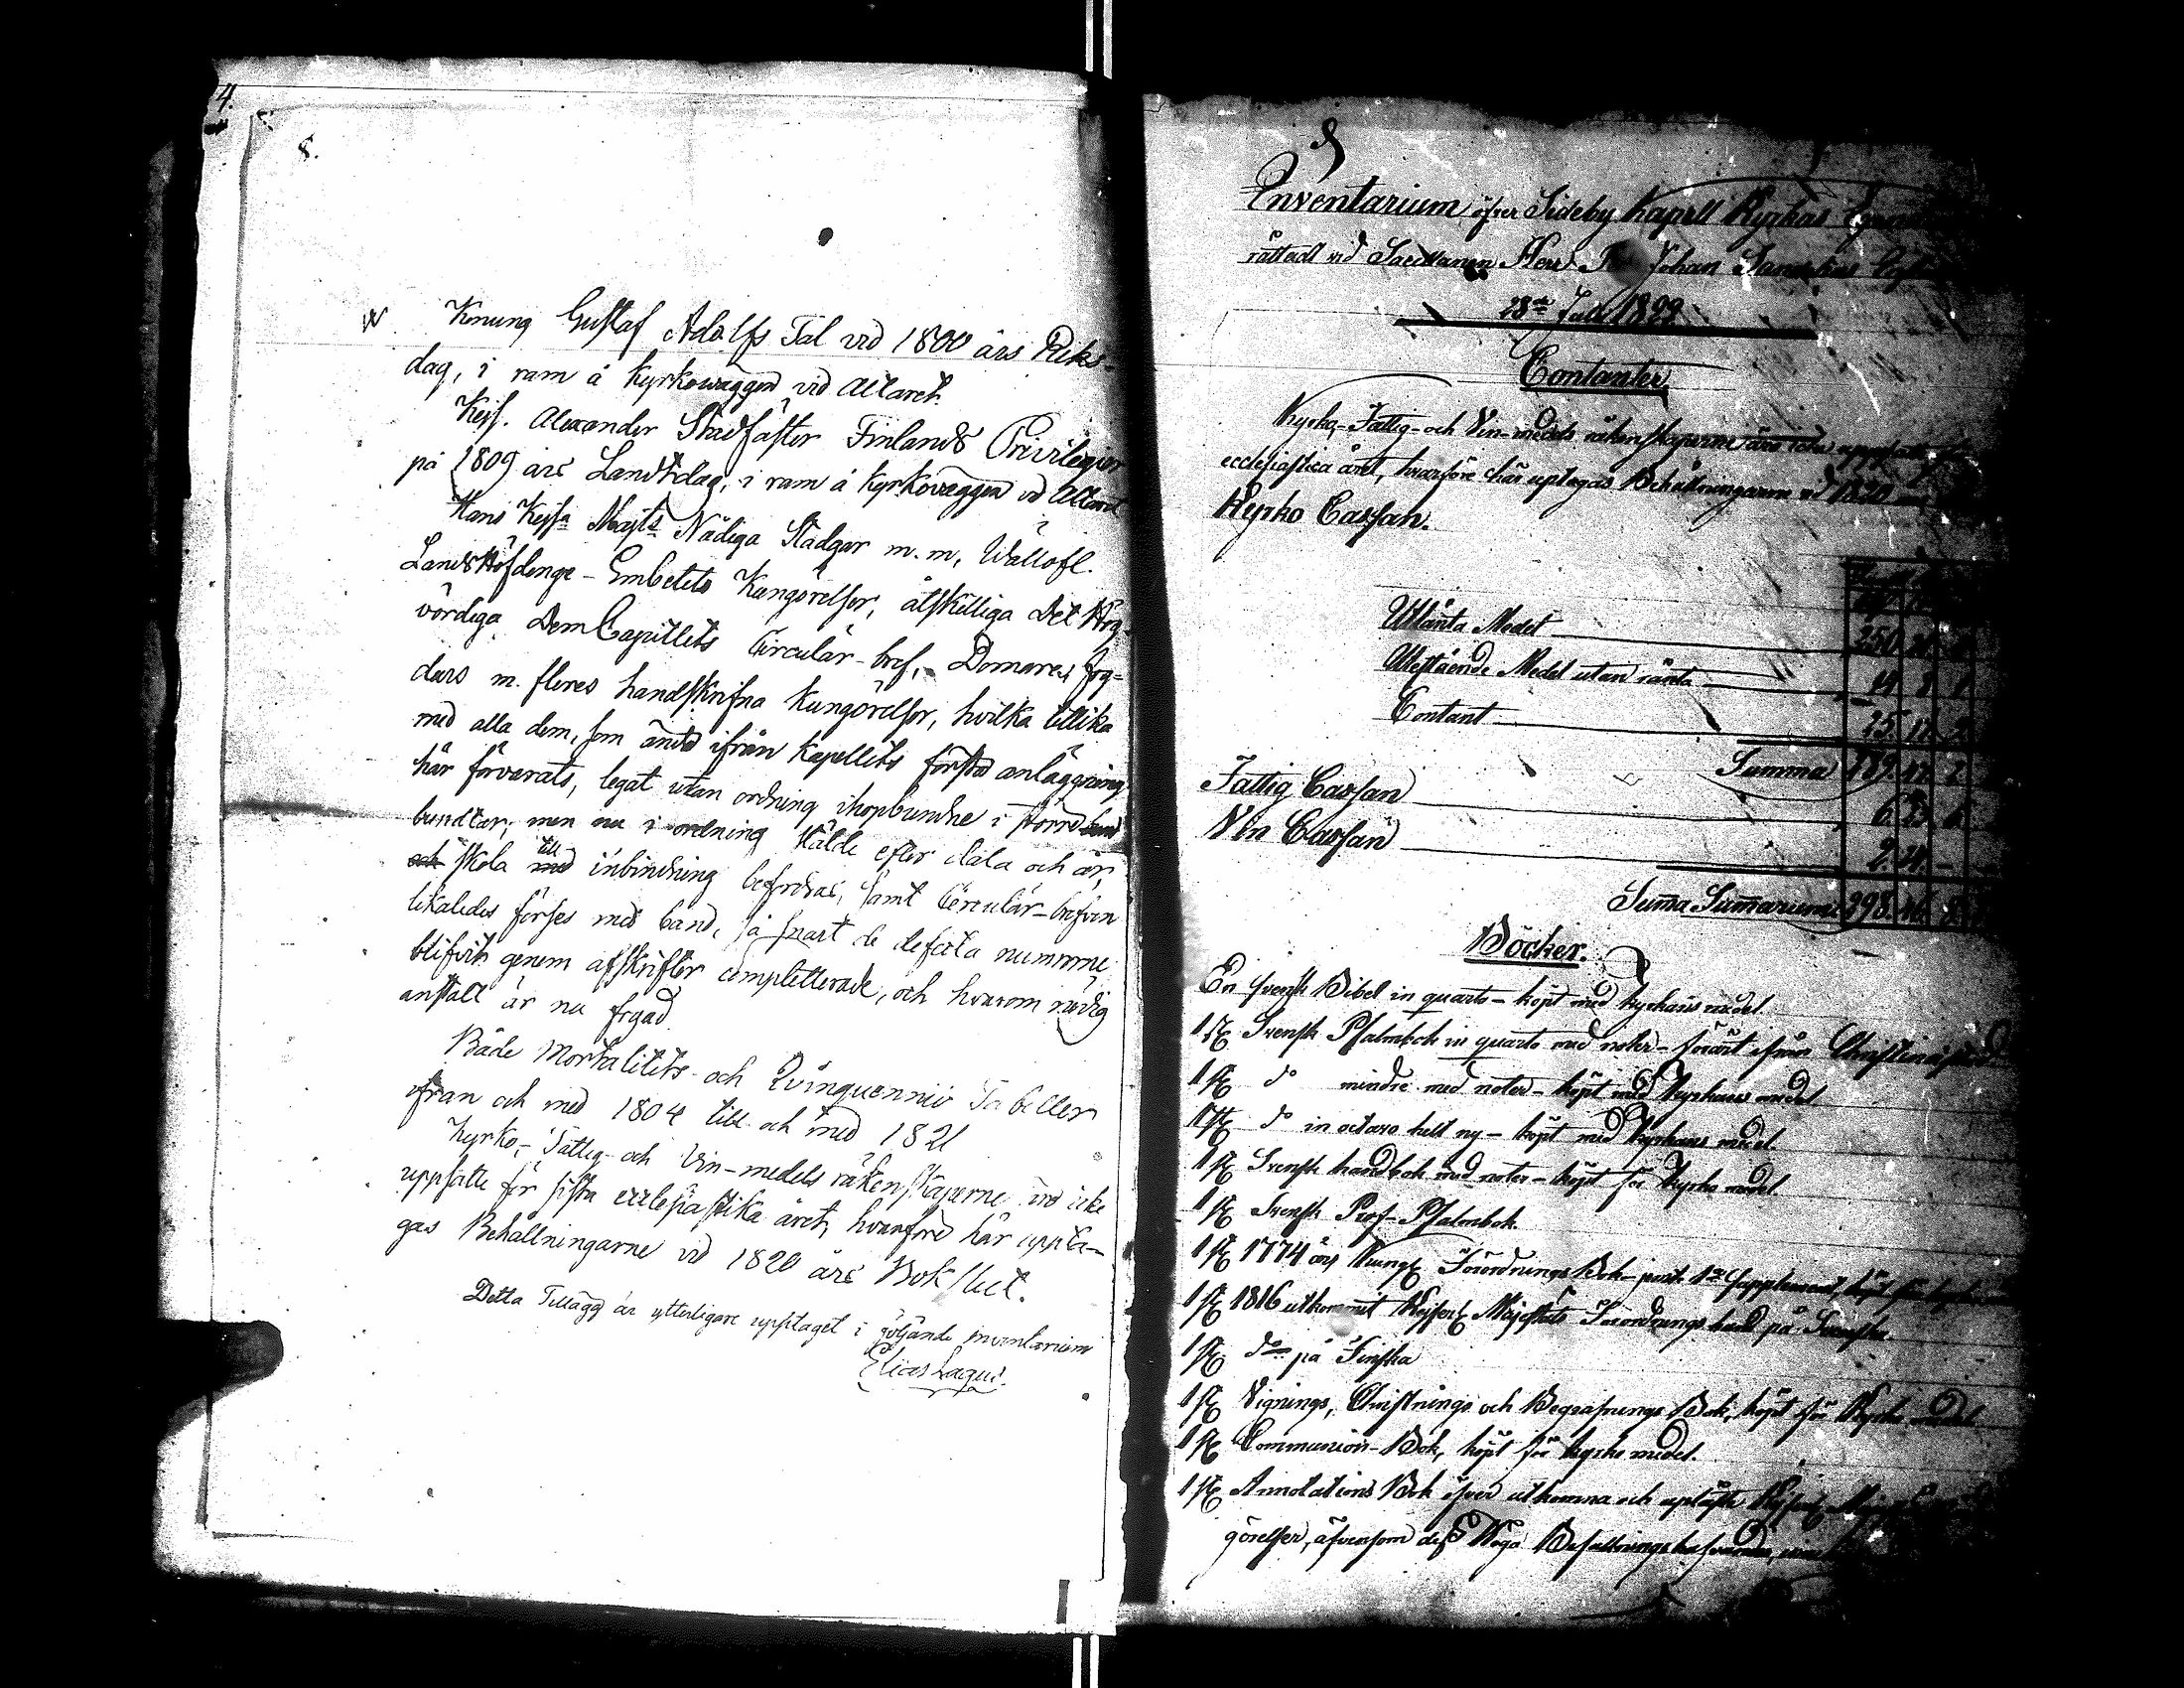 4.
8.
Konung Gustaf Adolfs Tal vid 1800 års Riks-
dag, i ram å kyrkowäggen vid altaret.
Kejs. Alexander Stadfäster Finlands Privilegier
på 1809 års Landtdag, i ram å kyrkoväggen vid Altaret
Hans Kejsa Majts Nådiga Stadgar m.m, Wällofl.
Landshöfdinge-Embetets Kungörelser, åtskilliga Det Hög-
vördiga DomCapitlets Circulär-bref, Domares, fog-
dars m. fleres handskrifna kungörelser, hvilka tillika
med alla dem, som ända ifrån Kapellets första anläggning
här förvarats, legat utan ordning ihopbundne i större
bundtar, men nu i ordning stälde efter data och år,
och skola till inbindning befordras, samt Circulär-brefven
likaledes förses med band, så snart de defecta numrorne
blifvit genom afskrifter completterade, och hvarom nödig
anstalt är nu fogad.
Både Mortalitets- och Quinquennii Tabeller
ifrån och med 1804 till och med 1821
Kyrko-, Fattig- och Vin-medels räkenskaperne äro icke
uppsatte för sista ecclesiastika året, hvarföre här uppta-
gas Behållningarne vid 1820 års Bokslut.
Detta Tillägg är ytterligare upptaget i följande inventarium
Elias Lagus.
Inventarium öfver Sideby Kapell Kyrkas
rättadt vid Herr Johan
28de Juli 1822
Contanter
Kyrko-, Fattig- och Vin-medels räkenskaperne äro icke uppsatte
ecclesiastica året, hvarföre här uptagas Behållningarne vid 1820
Kyrko Cassan.
Utlånta Medel 250.
Utestående Medel utan ränta 14. 8
Contant 25. 17.
Summa 289. 47.
Fattig Cassan 6. 23. 6
Vin Cassan 2. 24. -
Suma Sumarum 298.
Böcker.
En svensk Bibel in quarto - köpt med kyrkans medel.
1 st Svensk Psalmbok in quarto med noter - förärt ifrån
1 st do mindre med noter - köpt med kyrkans medel
1 st do in octavo helt ny - köpt med kyrkans medel.
1 st Svensk handbok med noter - köpt för kyrko medel
1 st Svensk Prof-Psalmbok.
1 st 1774 års Kungl Förordnings Bok
1 st 1816 utkommit Kejserl Majestäts Förordnings på Svenska.
1 st do på Finska
1 st Vignings, Christnings och Begrafnings Bok, köpt för Kyrko medel
1 st Communion-Bok, köpt för kyrko medel.
1 st Annotations Bok öfver utkomna och upläste Kejserl
görelser, äfvensom dess Höga Befallningshafvandes